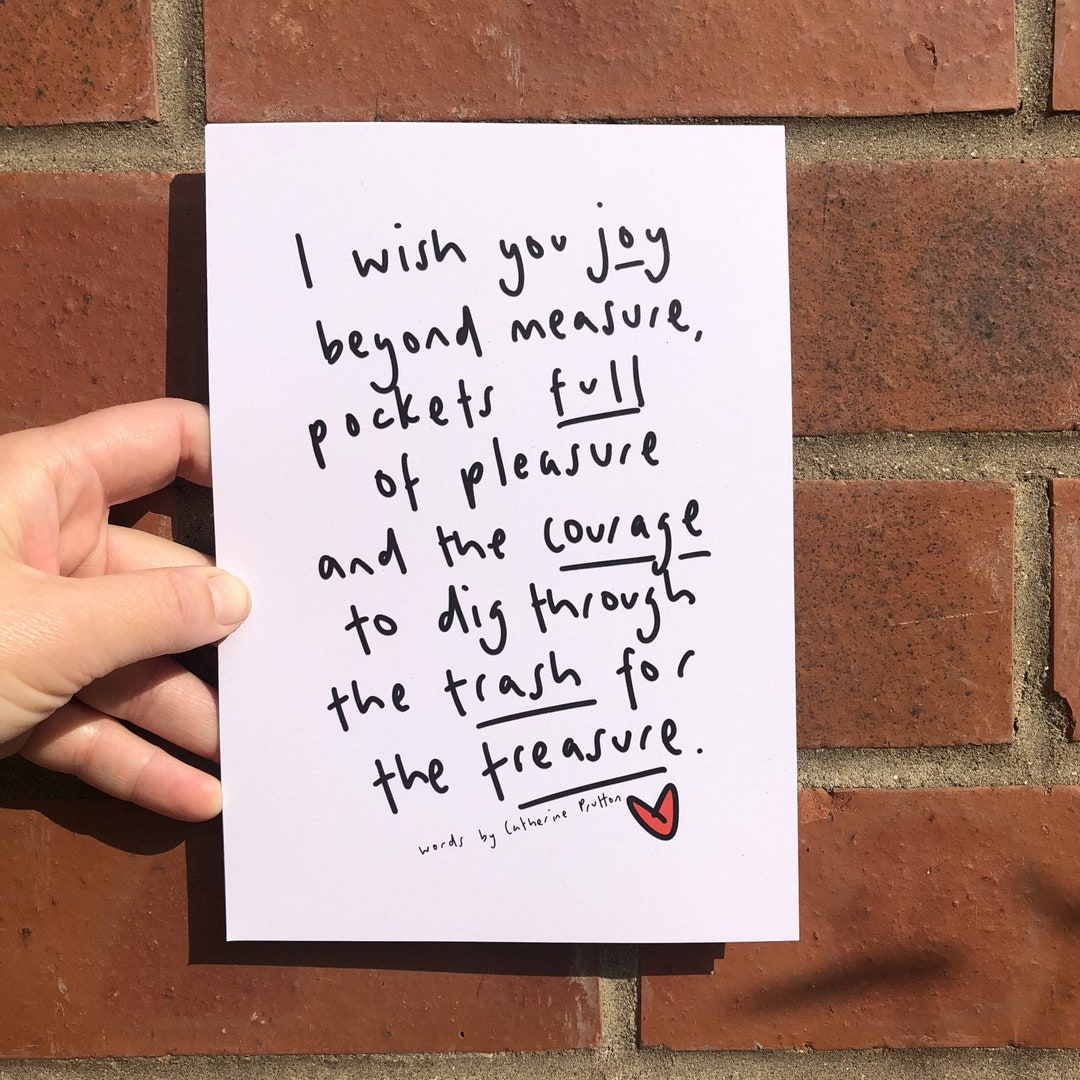 I wish you joy
beyond measure,
pockets full
of pleasure
and the courage
to dig through
the trash for
the treasure.
words by Catherine Prutton